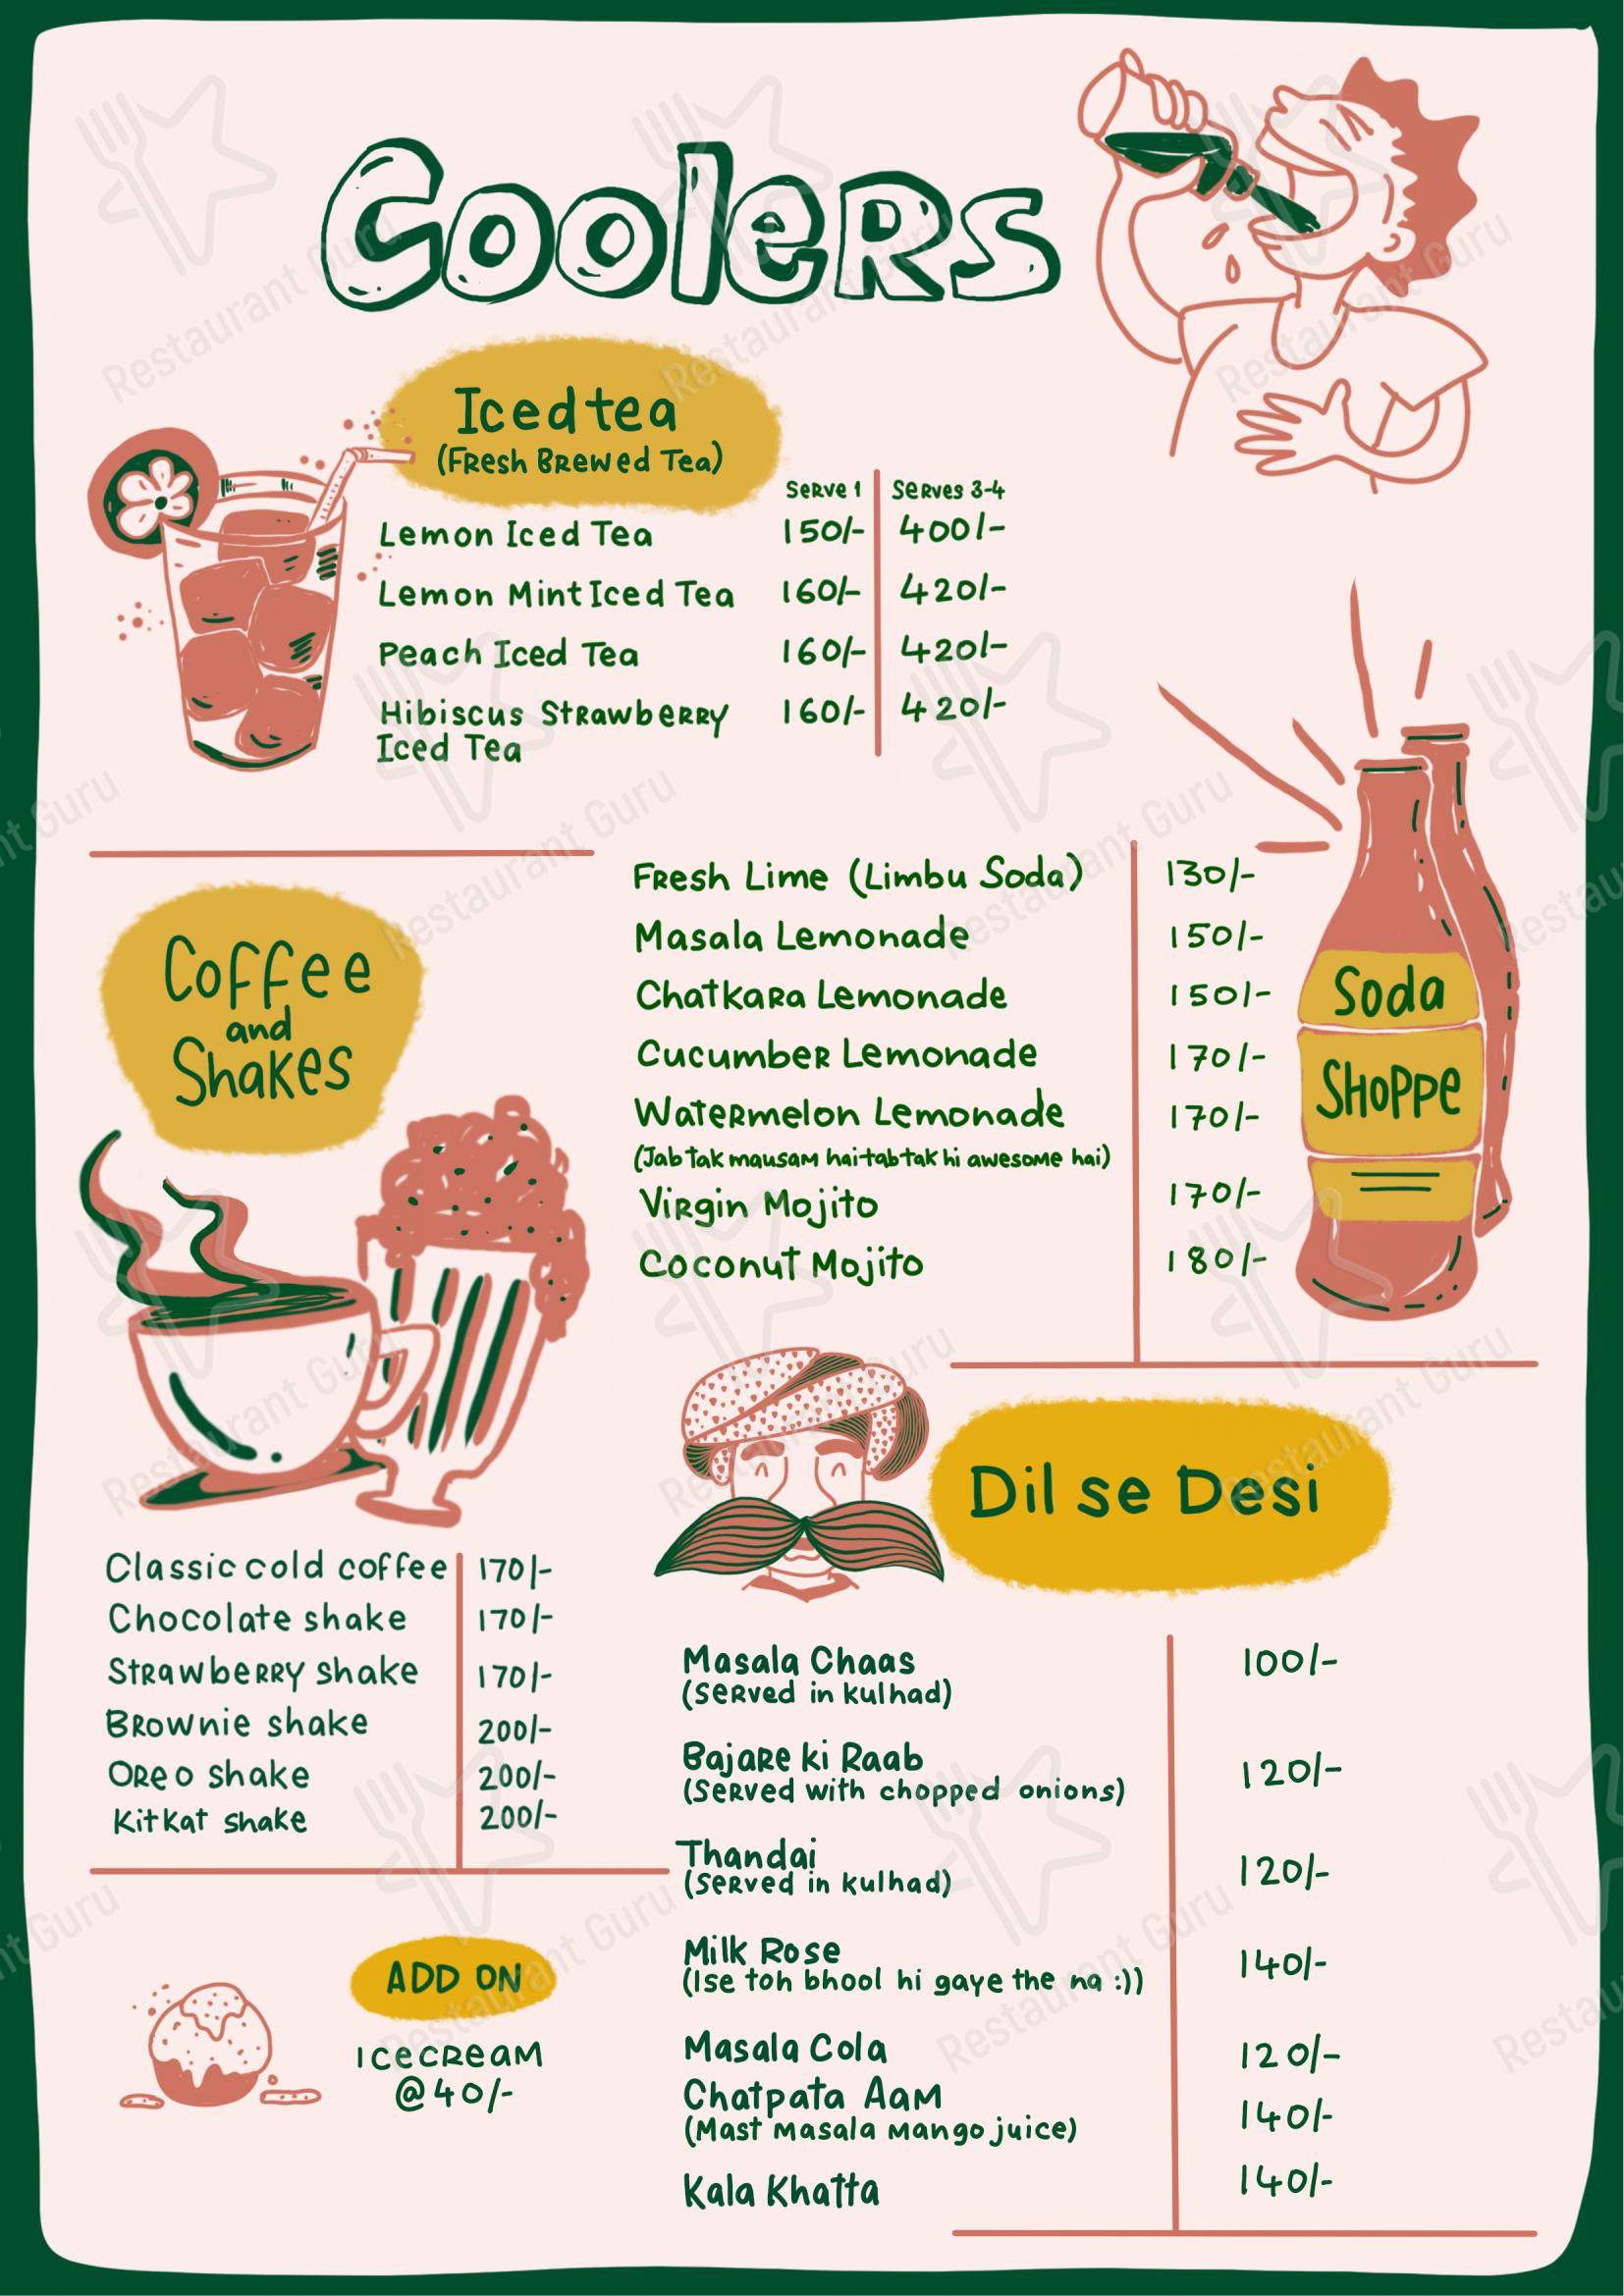 Coolers
Iced tea
(Fresh Brewed Tea)
Serve 1 Serves 3-4
Lemon Iced Tea 150/- 400/-
Lemon Mint Iced Tea 160/- 420/-
Peach Iced Tea 160/- 420/-
Hibiscus Strawberry 160/- 420/-
Iced Tea
Soda
Shoppe
Fresh Lime (Limbu Soda) 130/-
Masala Lemonade 150/-
Chatkara Lemonade 150/-
Cucumber Lemonade 170/-
Watermelon Lemonade 170/-
(Jab tak mausam hai tab tak hi awesome hai)
Virgin Mojito 170/-
Coconut Mojito 180/-
Coffee
and
Shakes
Classic cold coffee 170/-
Chocolate shake 170/-
Strawberry shake 170/-
Brownie shake 200/-
Oreo shake 200/-
Kitkat shake 200/-
ADD ON
Icecream
@40/-
Dil se Desi
Masala Chaas 100/-
(Served in kulhad)
Bajare ki Raab 120/-
(Served with chopped onions)
Thandai 120/-
(Served in kulhad)
Milk Rose 140/-
(Ise toh bhool hi gaye the na :))
Masala Cola 120/-
Chatpata Aam 140/-
(Mast Masala Mango juice)
Kala Khatta 140/-
Restaurant Guru